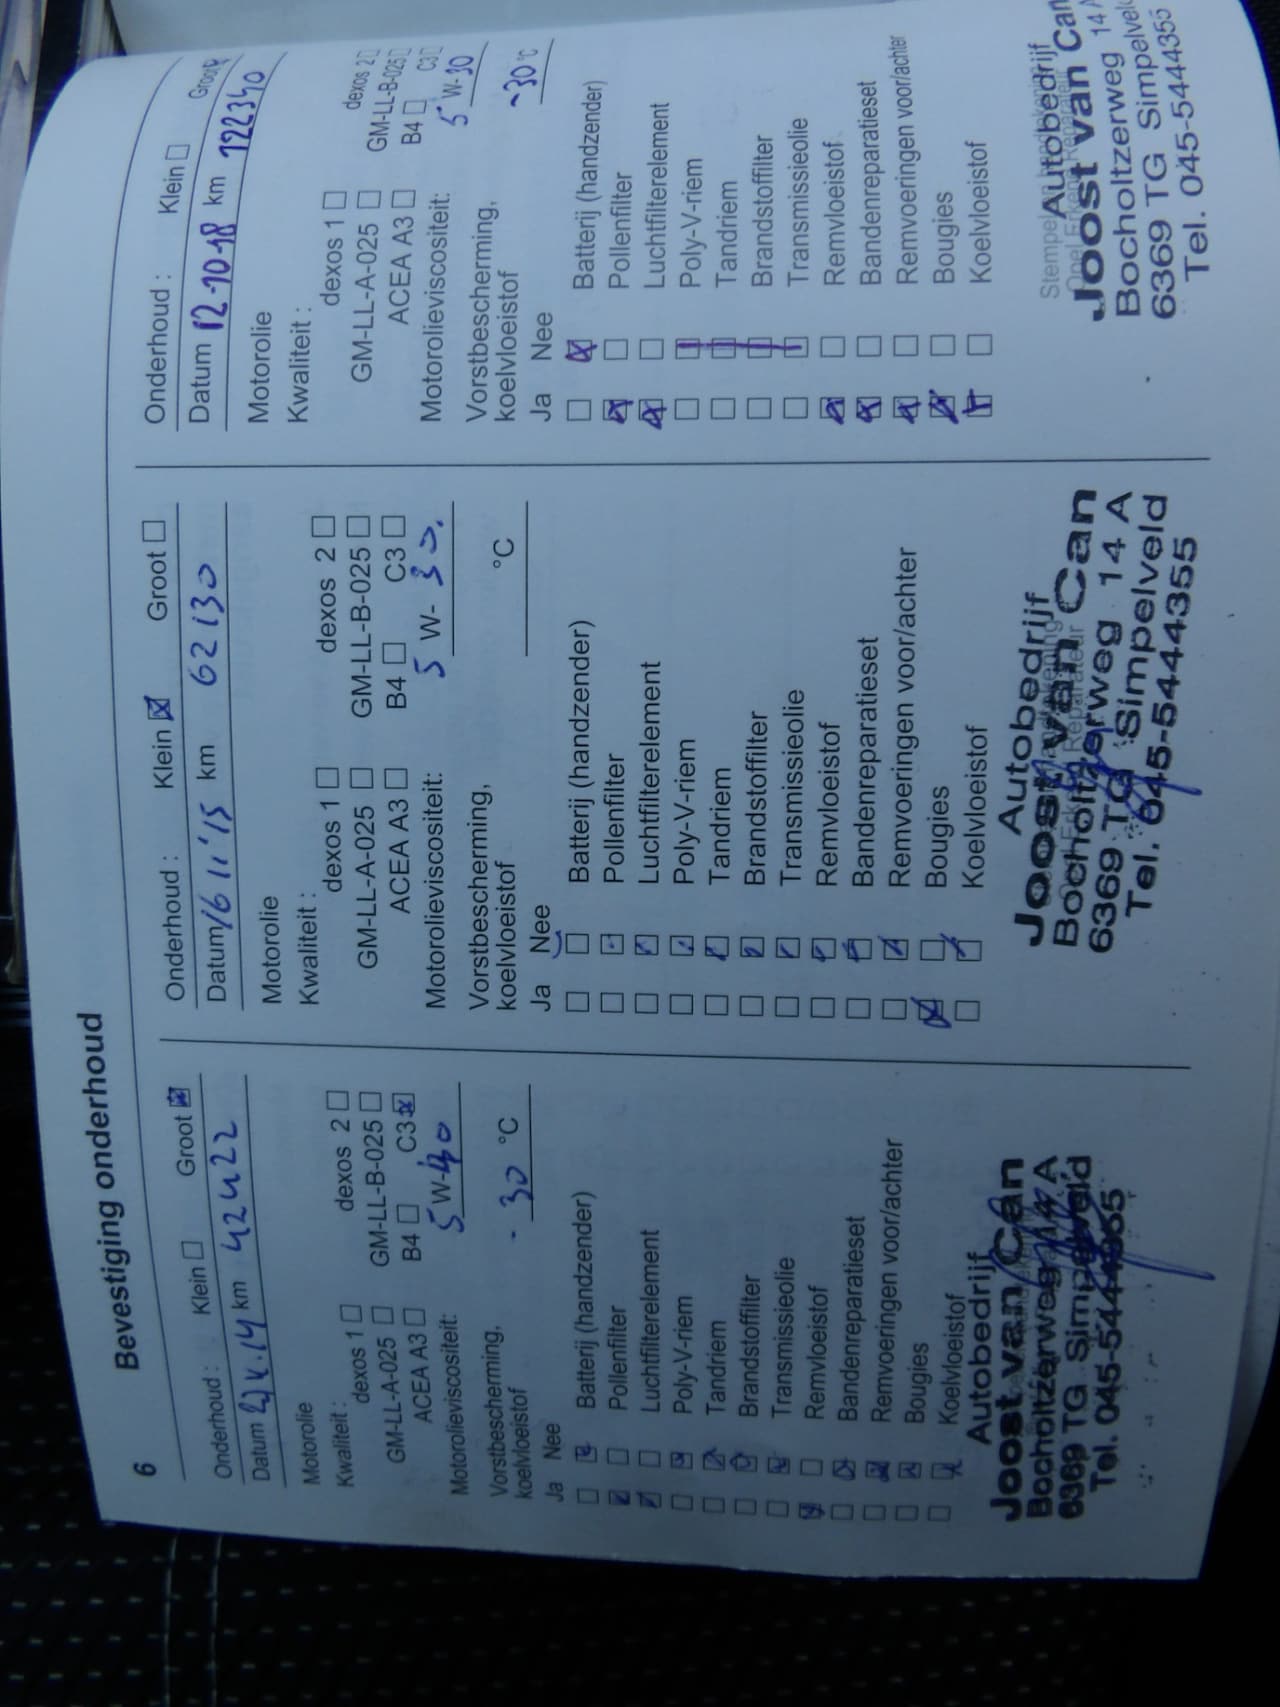 6 Bevestiging onderhoud
Onderhoud : Klein ☐ Groot ☒
Datum km 42422
Motorolie
Kwaliteit :
dexos 1 ☐ dexos 2 ☐
GM-LL-A-025 ☐ GM-LL-B-025 ☐
ACEA A3 ☐ B4 ☐ C3 ☒
Motorolieviscositeit: 5 W-40
Vorstbescherming,
koelvloeistof - 30 °C
Ja Nee
☐ ☒ Batterij (handzender)
☒ ☐ Pollenfilter
☒ ☐ Luchtfilterelement
☐ ☒ Poly-V-riem
☐ ☒ Tandriem
☐ ☒ Brandstoffilter
☐ ☒ Transmissieolie
☒ ☐ Remvloeistof
☐ ☒ Bandenreparatieset
☐ ☒ Remvoeringen voor/achter
☐ ☒ Bougies
☐ ☒ Koelvloeistof
Autobedrijf
Joost van Can
Bocholtzerweg 14 A
6369 TG Simpelveld
Tel. 045-5444355
Onderhoud : Klein ☒ Groot ☐
Datum 16 11 '15 km 62130
Motorolie
Kwaliteit :
dexos 1 ☐ dexos 2 ☐
GM-LL-A-025 ☐ GM-LL-B-025 ☐
ACEA A3 ☐ B4 ☐ C3 ☐
Motorolieviscositeit: 5 W- 30.
Vorstbescherming,
koelvloeistof °C
Ja Nee
☐ ☐ Batterij (handzender)
☐ ☒ Pollenfilter
☐ ☒ Luchtfilterelement
☐ ☒ Poly-V-riem
☐ ☒ Tandriem
☐ ☒ Brandstoffilter
☐ ☒ Transmissieolie
☐ ☒ Remvloeistof
☐ ☒ Bandenreparatieset
☐ ☒ Remvoeringen voor/achter
☒ ☐ Bougies
☐ ☒ Koelvloeistof
Autobedrijf
Joost van Can
Bocholtzerweg 14 A
6369 TG Simpelveld
Tel. 045-5444355
Onderhoud : Klein ☐ Groot
Datum 12-10-18 km 122340
Motorolie
Kwaliteit :
dexos 1 ☐ dexos 2 ☐
GM-LL-A-025 ☐ GM-LL-B-025 ☐
ACEA A3 ☐ B4 ☐ C3 ☐
Motorolieviscositeit: 5 W-30
Vorstbescherming,
koelvloeistof -30 °C
Ja Nee
☐ ☒ Batterij (handzender)
☒ ☐ Pollenfilter
☒ ☐ Luchtfilterelement
☐ ☒ Poly-V-riem
☐ ☒ Tandriem
☐ ☒ Brandstoffilter
☐ ☒ Transmissieolie
☒ ☐ Remvloeistof
☒ ☐ Bandenreparatieset
☒ ☐ Remvoeringen voor/achter
☒ ☐ Bougies
☒ ☐ Koelvloeistof
Autobedrijf
Joost van Can
Bocholtzerweg 14 A
6369 TG Simpelveld
Tel. 045-5444355